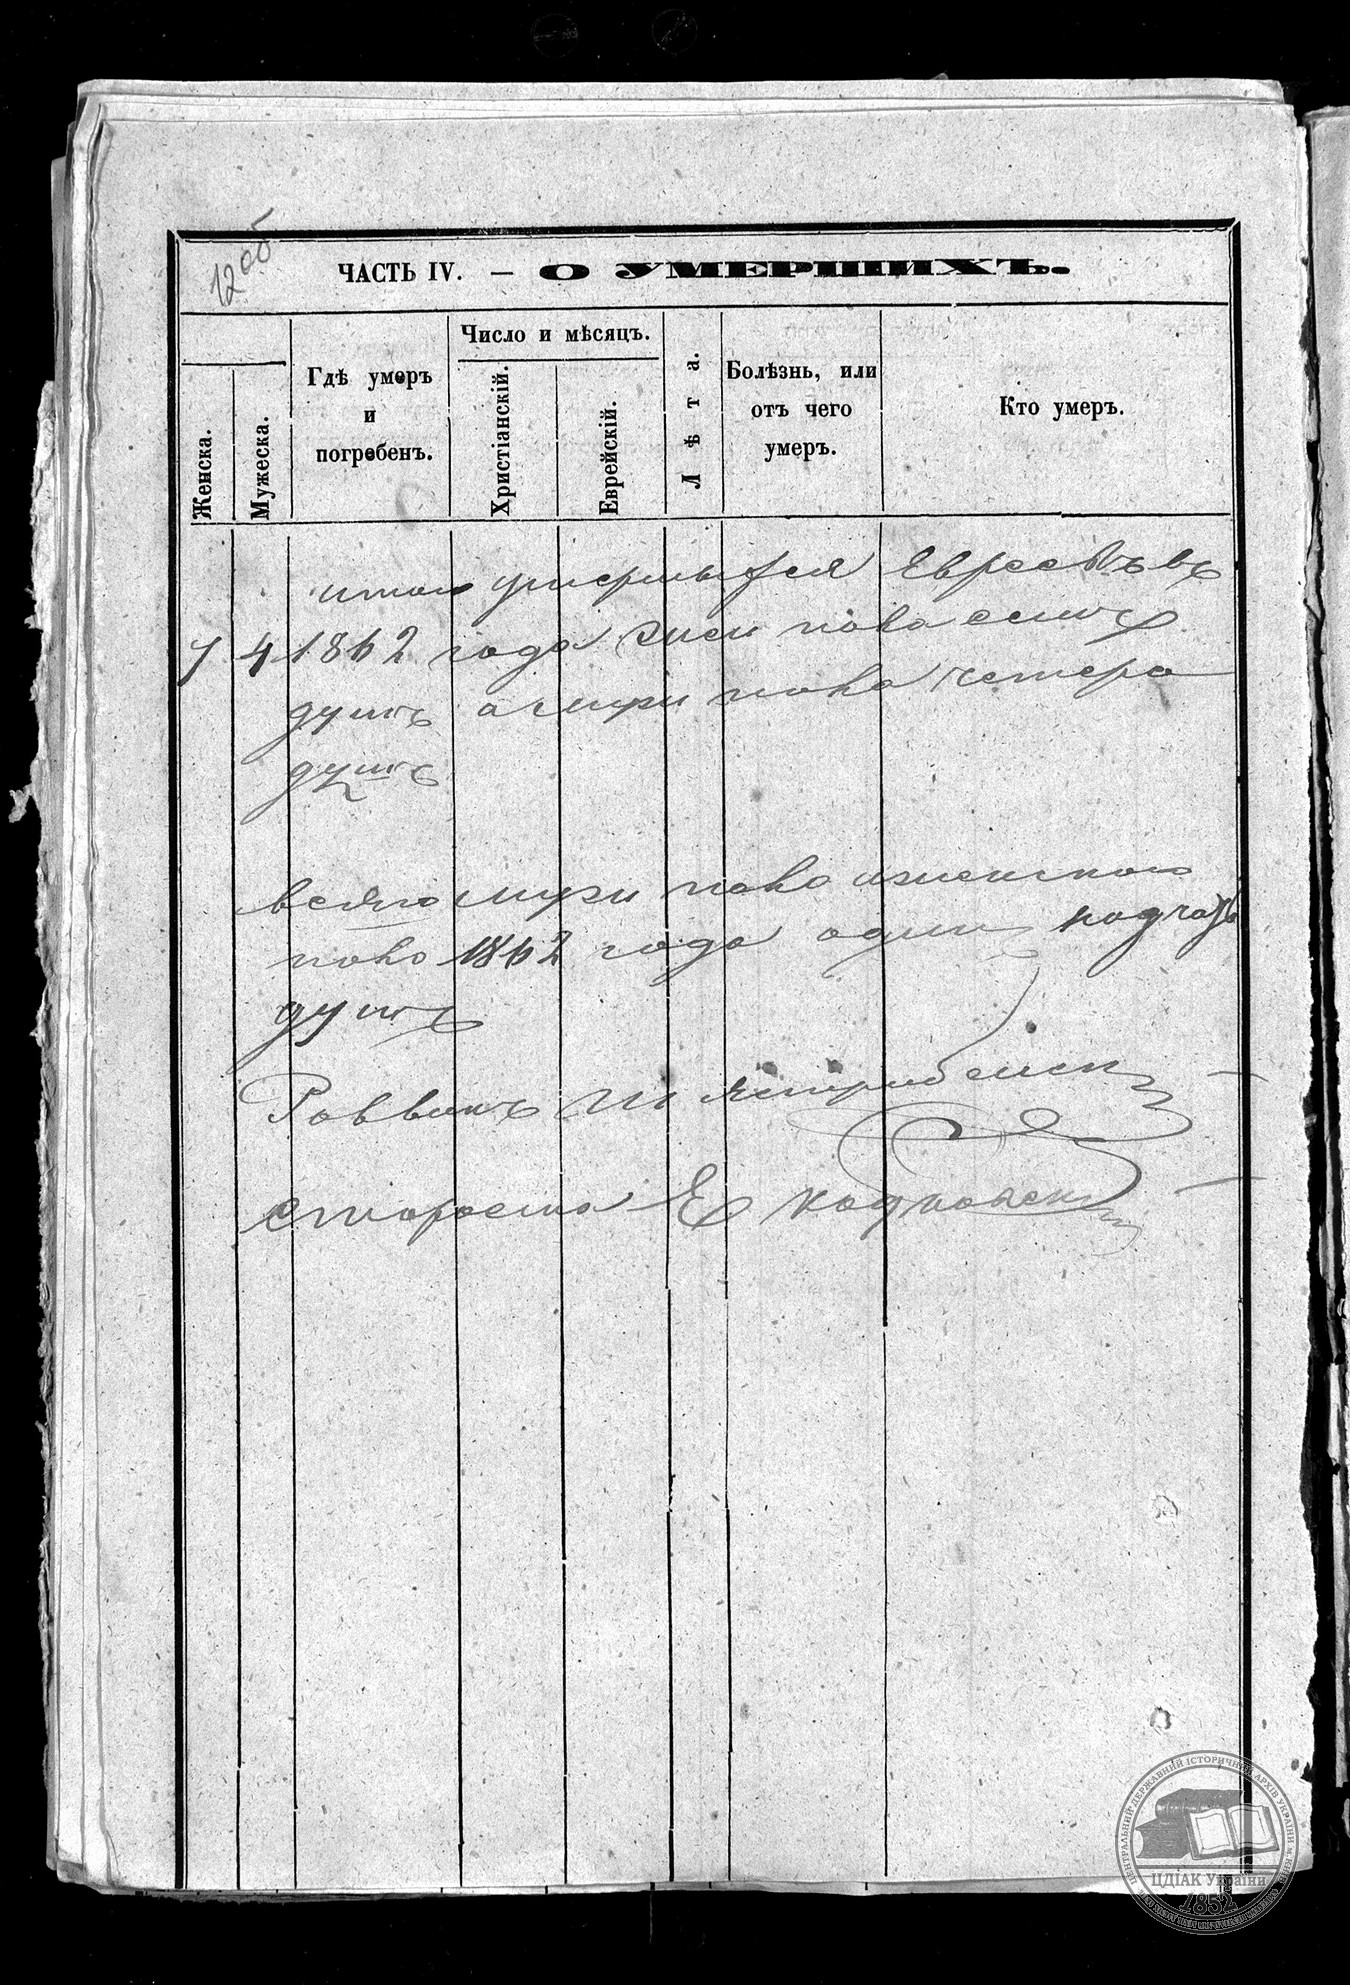 12об
ЧАСТЬ IV. — О УМЕРШИХЪ.
Женска.
Мужеска.
Гдѣ умеръ
и
погребенъ.
Число и мѣсяцъ.
Христіанскій.
Еврейскій.
Лѣта.
Болѣзнь, или
отъ чего
умеръ.
Кто умеръ.
итого умершыхся Евреевъ въ
7 4 1862 года жен пола семь
душъ а муж пола четеро
душъ
всяго муж пола и женского
пола 1862 года один надцать
душъ
Раввинъ Ш
староста Е
ЦЕНТРАЛЬНИЙ ДЕРЖАВНИЙ ІСТОРИЧНИЙ АРХІВ УКРАЇНИ М. КИЇВ
ЦДІАК України
1852